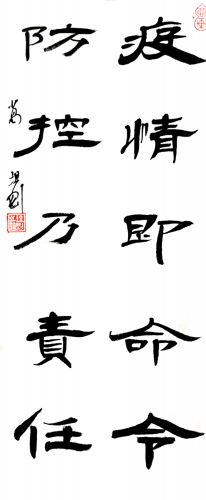 疫情即命令
防控乃责任